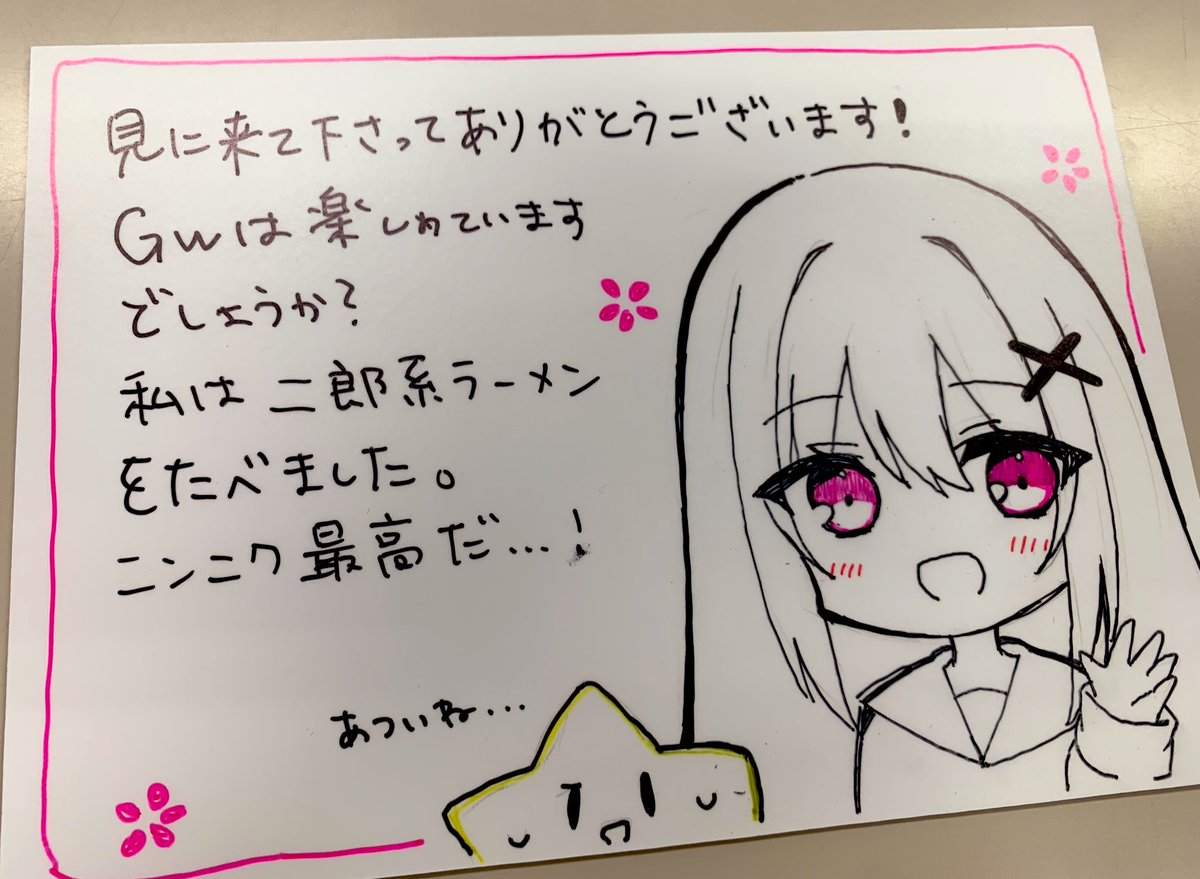 見に来て下さってありがとうございます!
GWは楽しめています
でしょうか?
私は二郎系ラーメン
をたべました。
ニンニク最高だ…!
あついね…